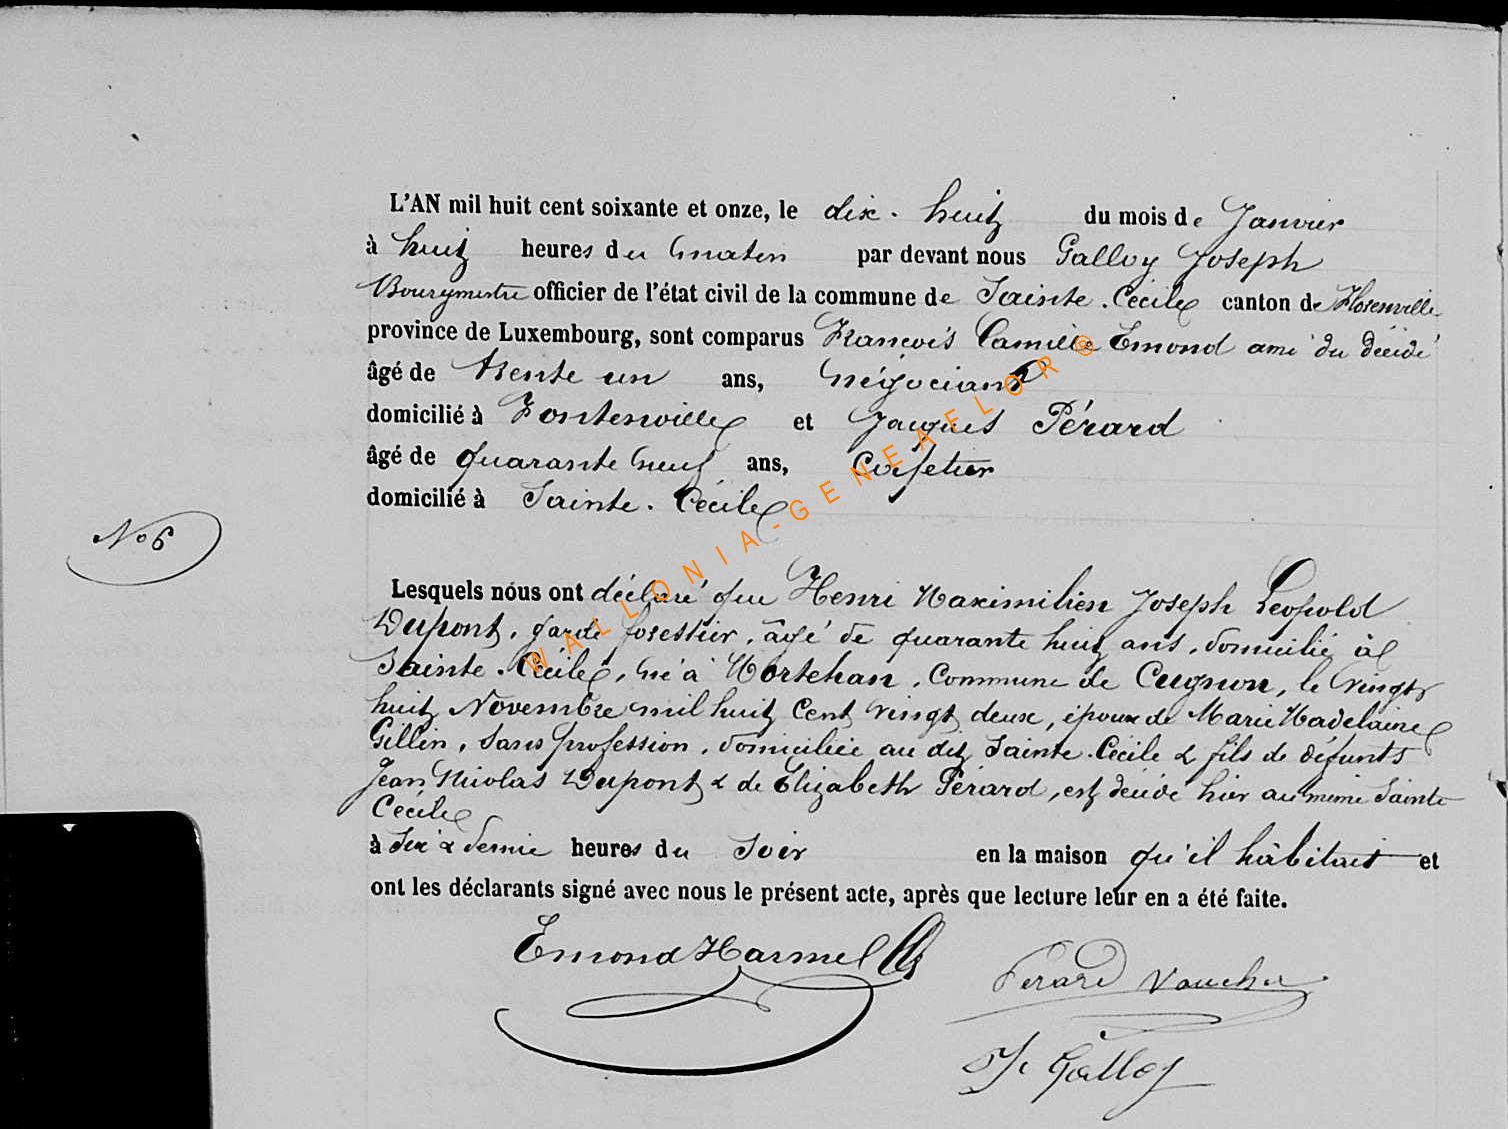 L'AN mil huit cent soixante et onze, le dix-huit du mois de Janvier
à huit heures du matin par devant nous Galloy Joseph
Bourgmestre officier de l'état civil de la commune de Sainte-Cécile canton de Florenville
province de Luxembourg, sont comparus François Camille Emond ami du décédé
âgé de trente un ans, négociant
domicilié à Fontenoille et Jacques Pérard
âgé de quarante neuf ans, Cafetier
domicilié à Sainte-Cécile
No 6
Lesquels nous ont déclaré que Henri Maximilien Joseph Léopold
Dupont, garde forestier, âgé de quarante huit ans, domicilié à
Sainte-Cécile, né à Mortehan, Commune de Cugnon, le vingt
huit Novembre mil huit Cent vingt deux, époux de Marie Madelaine
Gillin, sans profession, domiciliée au dit Sainte-Cécile & fils de défunts
Jean Nicolas Dupont & de Elizabeth Pérard, est décédé hier au même Sainte
Cécile
à six & demie heures du soir en la maison qu'il habitait et
ont les déclarants signé avec nous le présent acte, après que lecture leur en a été faite.
Emond Harmel
Perard Vaucher
J. Galloy
WALLONIA-GENEAFLOR ®